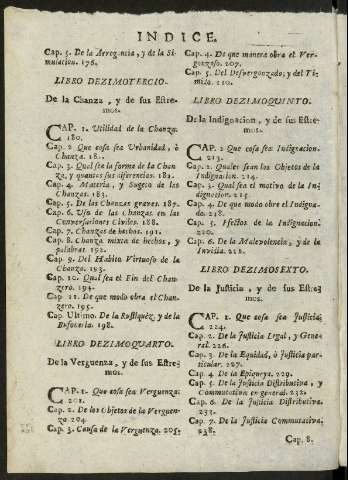 INDICE.
Cap. 5. De la Arrogancia, y de la Si-
mulacion. 176.
LIBRO DEZIMOTERCIO.
De la Chanza, y de sus Estre-
mos.
CAP. 1. Utilidad de la Chanza.
180.
Cap. 2 Que cosa sea Urbanidad, ò
Chanza. 181.
Cap. 3. Qual sea la forma de la Chan-
za, y quantas sus diferencias. 182.
Cap. 4. Materia, y Sugeto de las
Chanzas. 183.
Cap. 5. De las Chanzas graves. 187.
Cap. 6. Uso de las chanzas en las
Conversaciones Civiles. 188.
Cap. 7. Chanzas de hechos. 191.
Cap. 8. Chanza mixta de hechos, y
palabras. 192.
Cap. 9. Del Habito Virtuoso de la
Chanza. 193.
Cap. 10. Qual sea el Fin del Chan-
zero. 194.
Cap. 11. De que modo obra el Chan-
zero. 195.
Cap. Ultimo. De la Rustiquèz, y de la
Bufoneria. 198.
LIBRO DEZIMOQUARTO.
De la Verguenza, y de sus Estre-
mos.
CAP. 1. Que cosa sea Verguenza.
201.
Cap. 2. De los Objetos de la Verguen-
za 204.
Cap. 3. Causa de la Verguenza. 205.
Cap. 4. De que manera obra el Ver-
gonzoso. 207.
Cap. 5. Del Desvergonzado, y del Ti-
mido. 210.
LIBRO DEZIMOQUINTO.
De la Indignacion, y de sus Estre-
mos.
CAP. 1. Que cosa sea Indignacion.
213.
Cap. 2. Quales sean los Objetos de la
Indignacion. 214.
Cap. 3. Qual sea el motivo de la In-
dignacion. 215.
Cap. 4. De que modo obre el Indigna-
do. 218.
Cap. 5. Efectos de la Indignacion.
220.
Cap. 6. De la Malevolencia, y de la
Invidia.
LIBRO DEZIMOSEXTO.
De la Justicia, y de sus Estre-
mos.
CAP. 1. Que cosa sea Justicia.
224.
Cap. 2. De la Justicia Legal, y Gene-
ral. 226.
Cap. 3. De la Equidad, ò Justicia par-
ticular. 227.
Cap. 4. De la Epiqueya. 229.
Cap. 5. De la Justicia Distributiva, y
Commutativa en general. 232.
Cap. 6. De la Justicia Distributiva.
Cap. 7. De la Justicia Commutativa.
238.
Cap. 8.